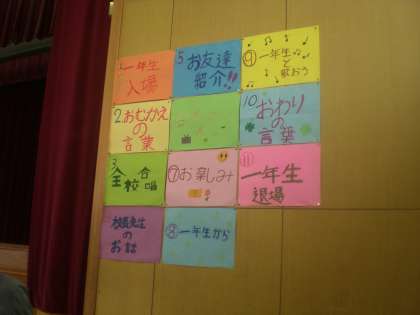 一年生
入場
2.おむかえ
の
言葉
3
全校合唱
校長先生
の
お話
5
お友達
紹介!!
⑦お楽しみ
⑧一年生から
⑨一年生
と
歌おう
10
おわり
の
言葉
⑪
一年生
退場